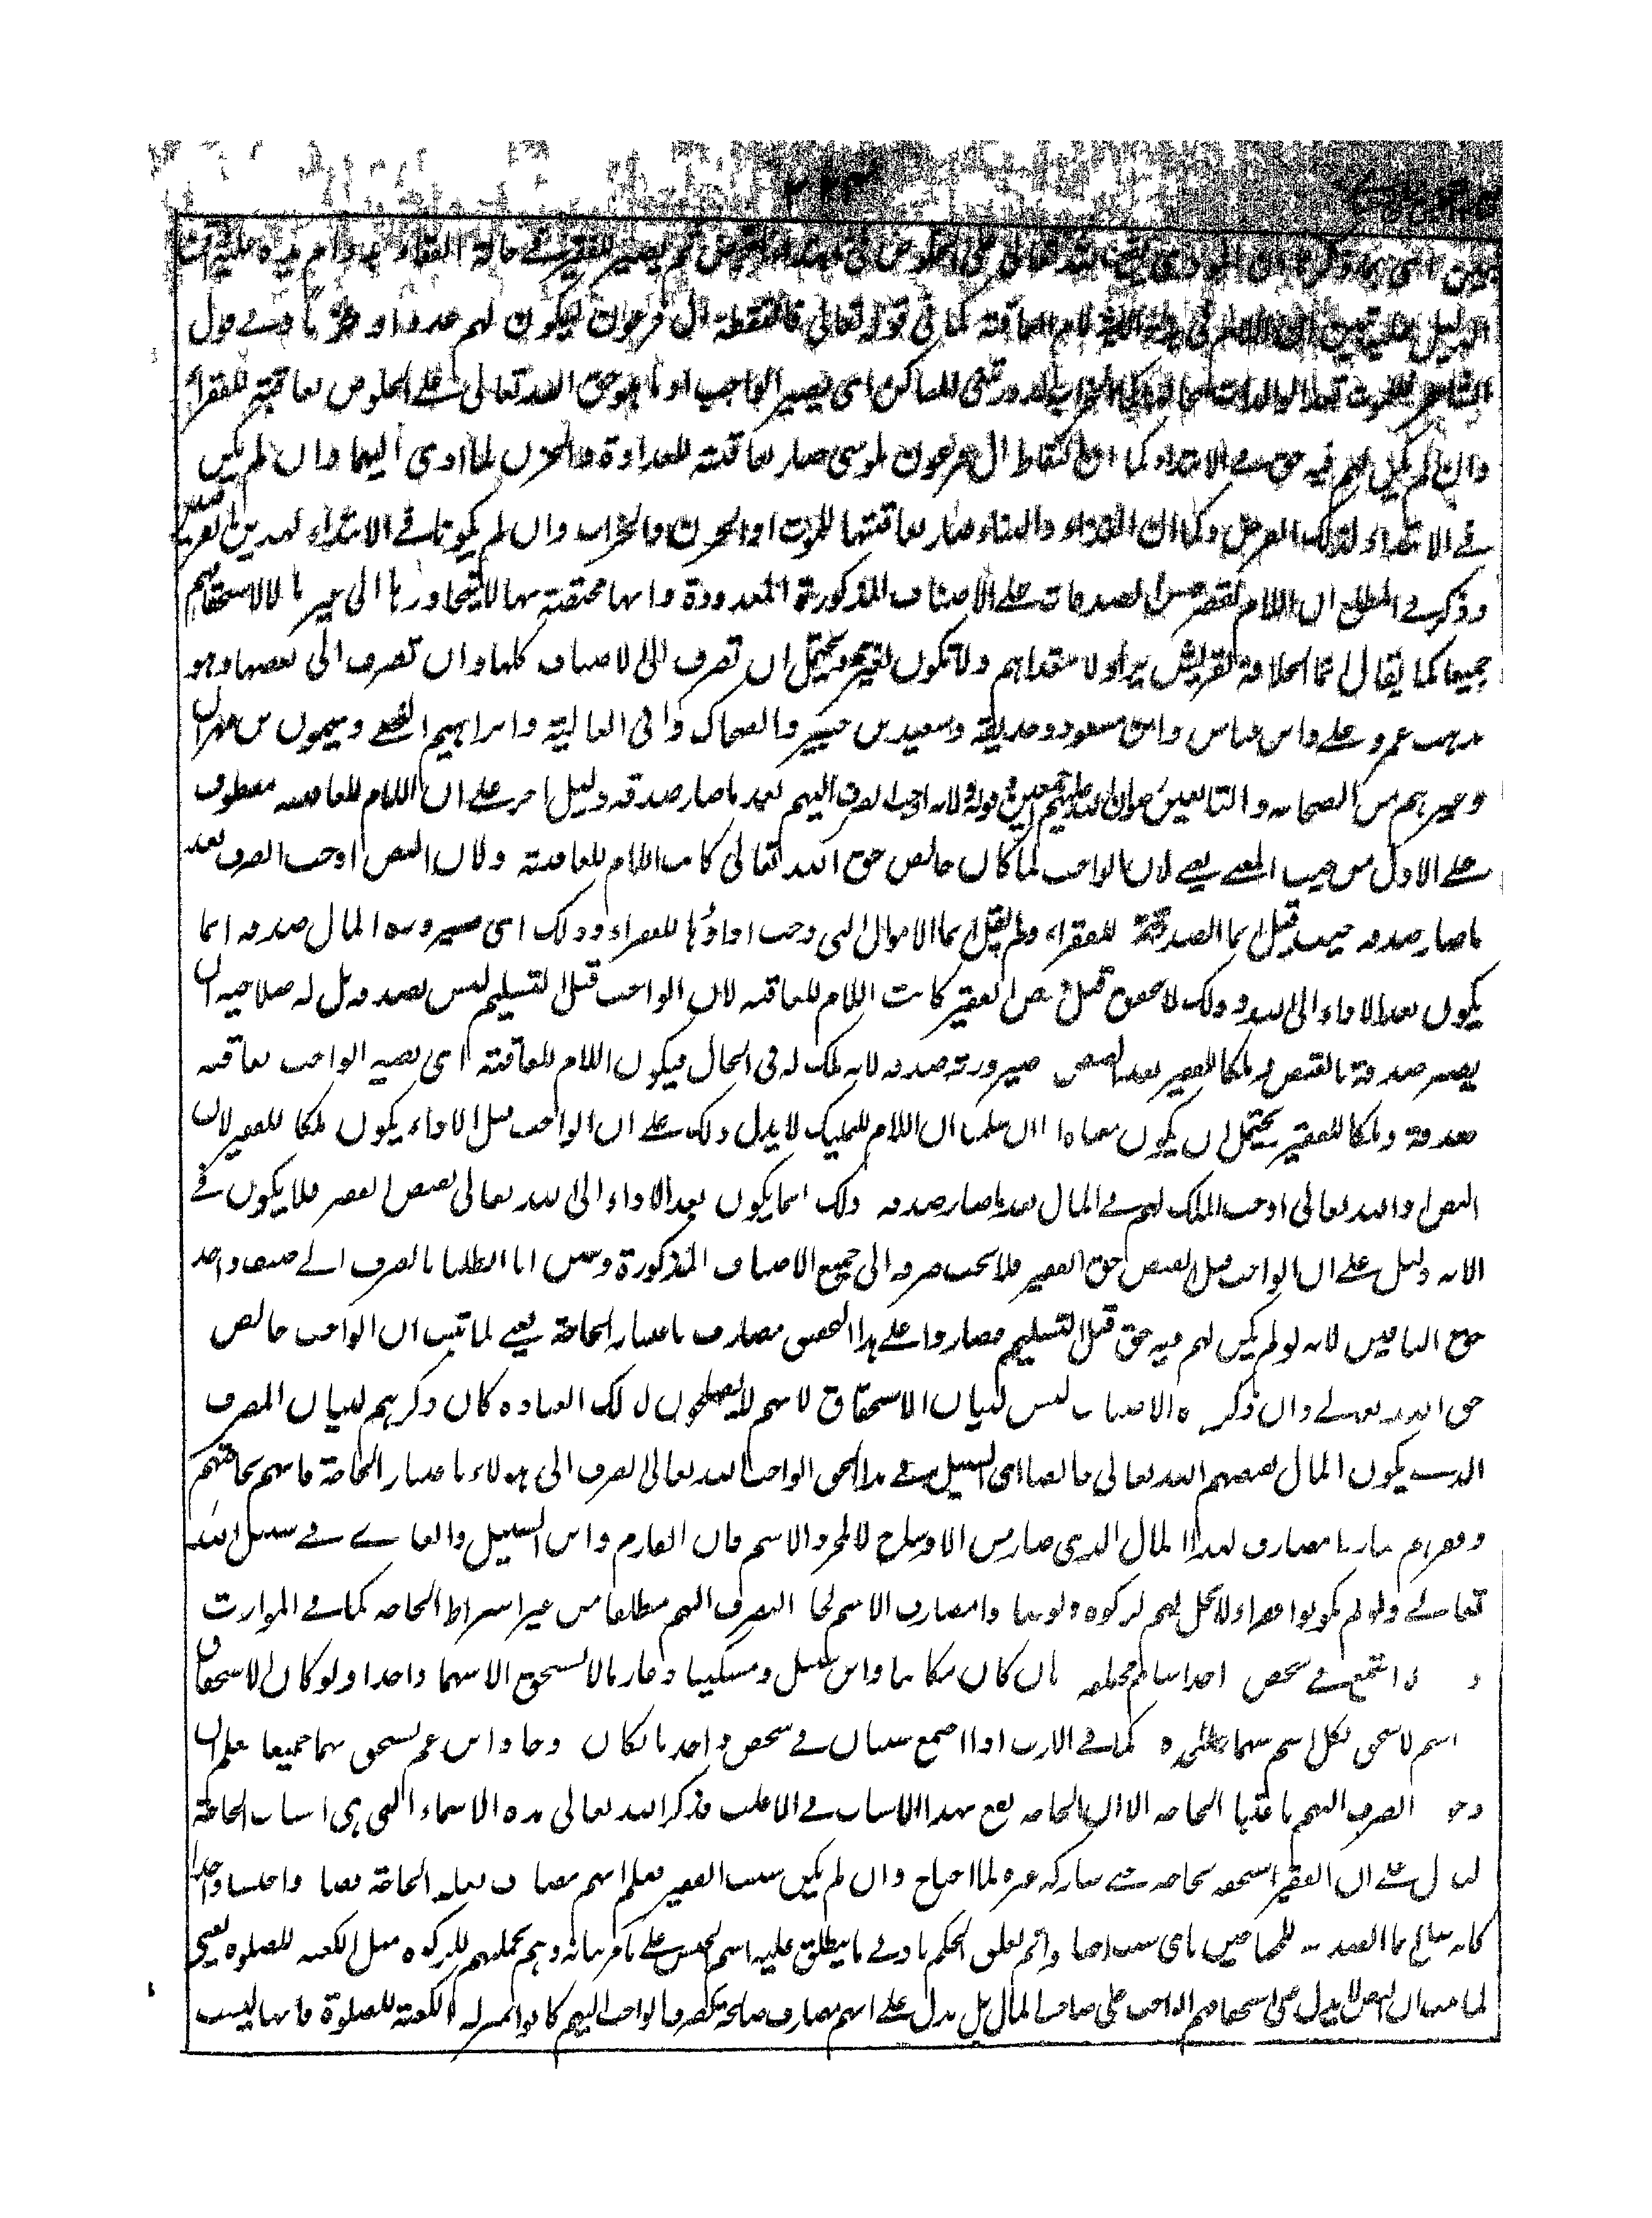 الدليل فتبين ان اللام في هذه الآية لام العاقبة كما في قوله تعالى فالتقطه ال فرعون ليكون لهم عدوا و حزنا وفي قول
الشاعر للموت تغذو الوالدات لخراب الدور تبنى المساكن اى يصير الواجب اداؤه هو حق الله تعالى على الخلوص لعاقبته للفقراء
وان لم يكن لهم فيه حق في الابتداء كما ان التقاط ال فرعون لموسى صار لعاقبته للعداوة والحزن لما ادى اليهما وان لم يكن
في الابتداء لذلك الغرض وكما ان الغذاء والبناء صار لعاقبتهما للموت او الحزن والخراب وان لم يكونا في الابتداء لهذين الغرضين
وذكر في المطلع ان اللام لقصر جنس الصدقات على الاصناف المذكورة المعدودة وانها مختصة بها لا يتجاوزها الى غيرها لا لاستحقاقهم
جميعا كما يقال انما الخلافة لقريش يراد لا تتعداهم ولا تكون لغيرهم ويحتمل ان تصرف الى الاصناف كلها وان تصرف الى بعضها وهو
مذهب عمر وعلى وابن عباس وابن مسعود وحذيفة وسعيد بن جبير والضحاك وابى العالية وابراهيم النخعي وميمون بن مهران
وغيرهم من الصحابة والتابعين رضوان الله عليهم اجمعين قوله ولانه اوجب الصرف اليهم بعد ما صار صدقة دليل اخر على ان اللام للعاقبة معطوف
على الاول من حيث المعنى يعنى لان الواجب لما كان خالص حق الله تعالى كانت اللام للعاقبة ولان النص اوجب الصرف بعد
ما صار صدقة حيث قيل انما الصدقة للفقراء ولم يقل انما الاموال التى وجب اداؤها للفقراء وذلك اى صيرورة المال صدقة انما
يكون بعد الاداء الى الله وذلك لا يتحقق قبل قبض الفقير كانت اللام للعاقبة لان الواجب قبل التسليم ليس بصدقة بل له صلاحية ان
يصير صدقة بالقبض وملكا للفقير بعد القبض صيرورته صدقة لانه ملك له في الحال فيكون اللام للعاقبة اى يصير الواجب لعاقبته
صدقة وملكا للفقير يحتمل ان يكون معناه انا ان سلمنا ان اللام للتمليك لا يدل ذلك على ان الواجب قبل الاداء يكون ملكا للفقير لان
النص او الله تعالى اوجب الملك لهم في المال بعد ما صار صدقة وذلك انما يكون بعد الاداء الى الله تعالى بقبض الفقير فلا يكون في
الاية دليل على ان الواجب قبل القبض حق الفقير فلا يجب صرفه الى جميع الاصناف المذكورة وتبين انا ما ابطلنا بالصرف الى صنف واحد
حق الباقين لانه لو لم يكن لهم فيه حق قبل التسليم فصاروا على هذا التحقيق مصارف باعتبار الحاجة يعنى لما ثبت ان الواجب خالص
حق الله تعالى وان ذكر هذه الاصناف ليس لبيان الاستحقاق لانهم لا يصلحون لذلك العبادة كان ذكرهم لبيان المصرف
الذى يكون المال بقبضهم لله تعالى خالصا اى السبيل في هذا الحق الواجب لله تعالى الصرف الى هؤلاء باعتبار الحاجة فانهم بحاجتهم
وفقرهم صاروا مصارف لهذا المال الذى صار من الاوساخ لا لمجرد الاسم فان الغارم وابن السبيل والغازى في سبيل الله
تعالى ولو لم يكونوا فقراء لا يحل لهم الزكوة ولو صاروا مصارف بالاسم لجاز الصرف اليهم مطلقا من غير اشتراط الحاجة كما في المواريث
اجتمع في شخص واحد اسام مختلفة بان كان مكاتبا وابن سبيل ومسكينا وغارما لا يستحق الا سهما واحدا ولو كان الاستحقاق
اسم لاستحق بكل اسم سهما على حدة كما في الارث اذا اجتمع سببان في شخص واحد بان كان زوجا وابن عم يستحق بهما جميعا فعلم ان
الصرف اليهم باعتبار الحاجة الا ان الحاجة تقع بهذه الاسباب في الاغلب فذكر الله تعالى هذه الاسماء التى هى اسباب الحاجة
ليدل على ان الفقير استحقه بحاجته حتى شاركه غيره لما احتاج وان لم يكن بسبب الفقر فعلم انهم مصارف بعلة الحاجة فصاروا جنسا واحدا
كانه قال انما الصدقة للمحتاجين باى سبب احتاجوا ثم تعلق الحكم بادنى ما ينطلق عليه اسم الجنس على ما مر بيانه وهم بجملتهم للزكوة مثل الكعبة للصلوة يعنى
لما ثبت ان النص لا يدل على استحقاقهم الواجب على صاحب المال بل يدل على انهم مصارف صالحة لصرف الواجب اليهم كانوا بمنزلة الكعبة للصلوة فانها ليست